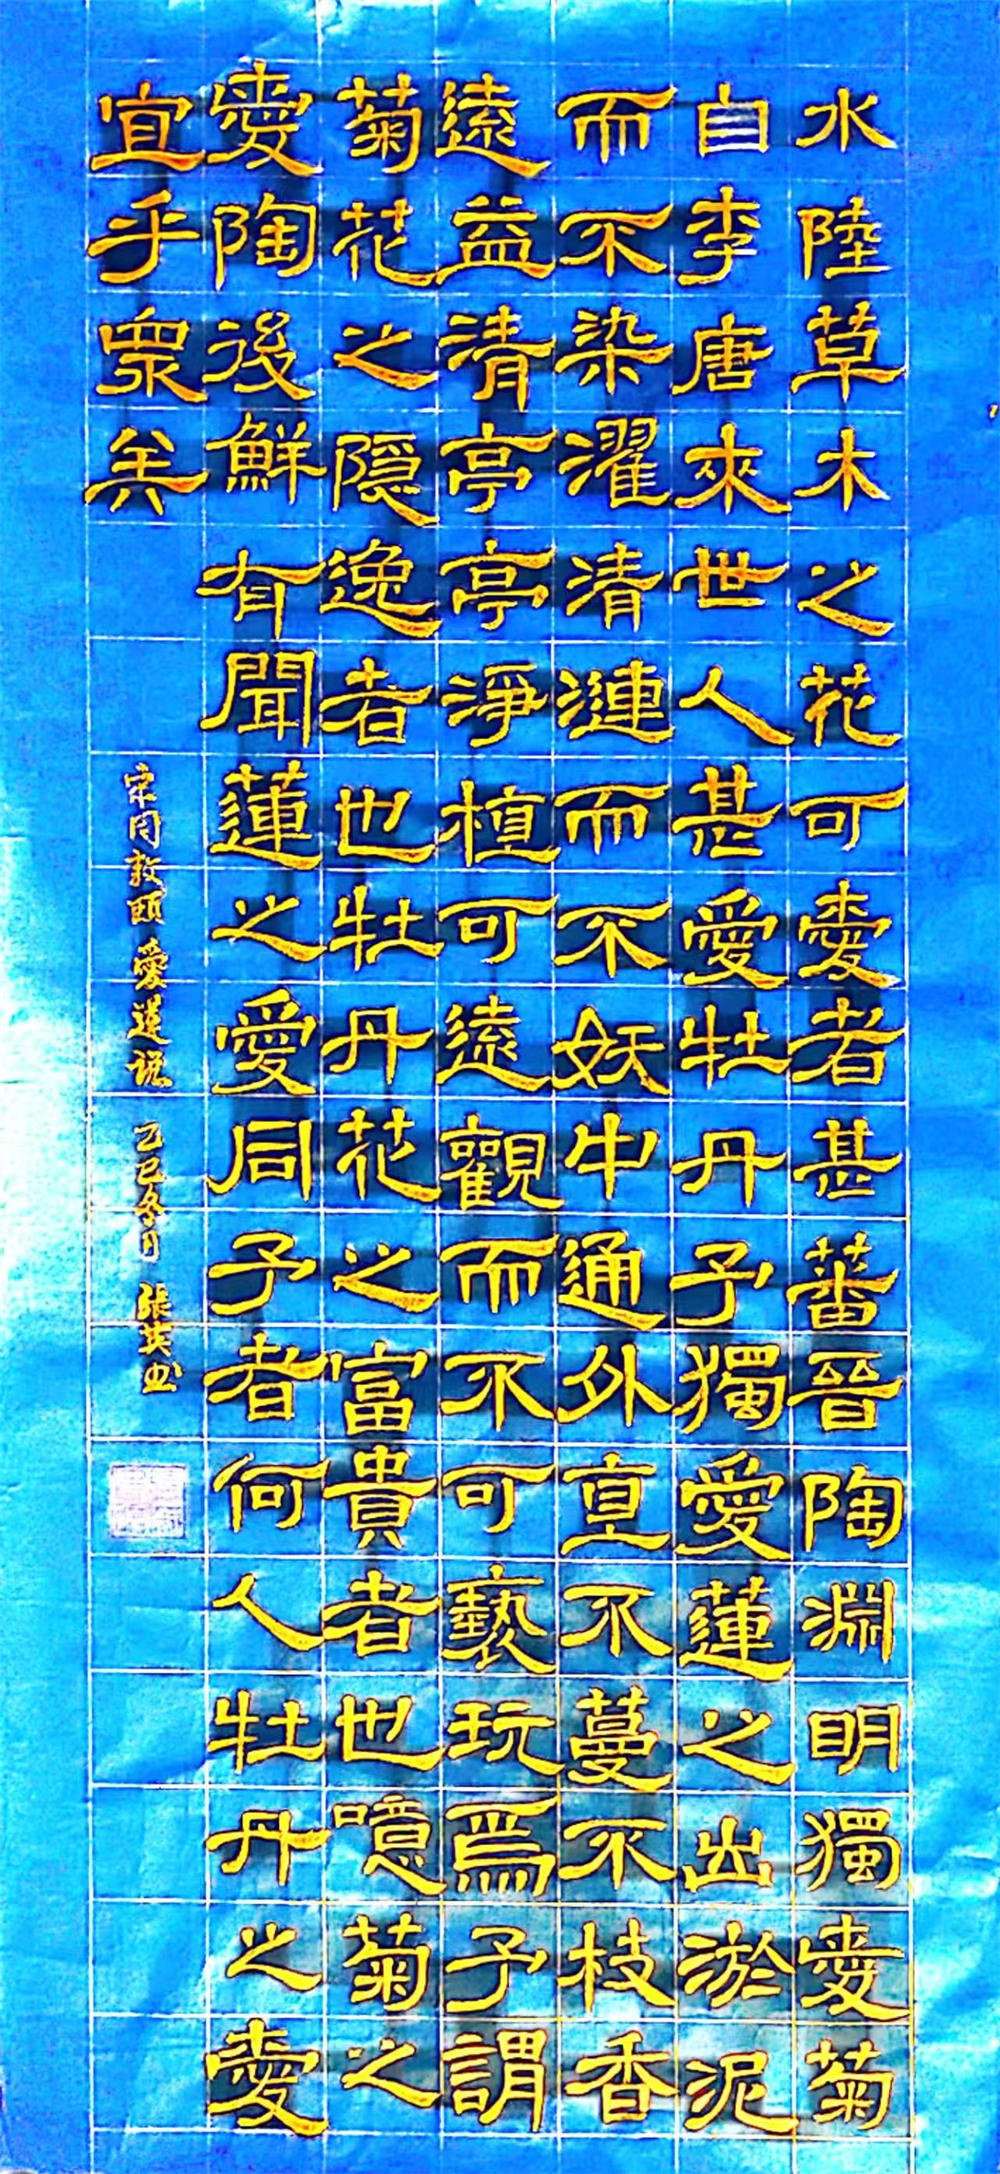 水陸草木之花可愛者甚蕃晉陶淵明獨愛菊
自李唐來世人甚愛牡丹予獨愛蓮之出淤泥
而不染濯清漣而不妖中通外直不蔓不枝香
遠益清亭亭淨植可遠觀而不可褻玩焉予謂
菊花之隐逸者也牡丹花之富貴者也噫菊之
愛陶後鮮有聞蓮之愛同予者何人牡丹之愛
宜乎眾矣
宋周敦頤愛蓮说 乙巳冬月 張英书